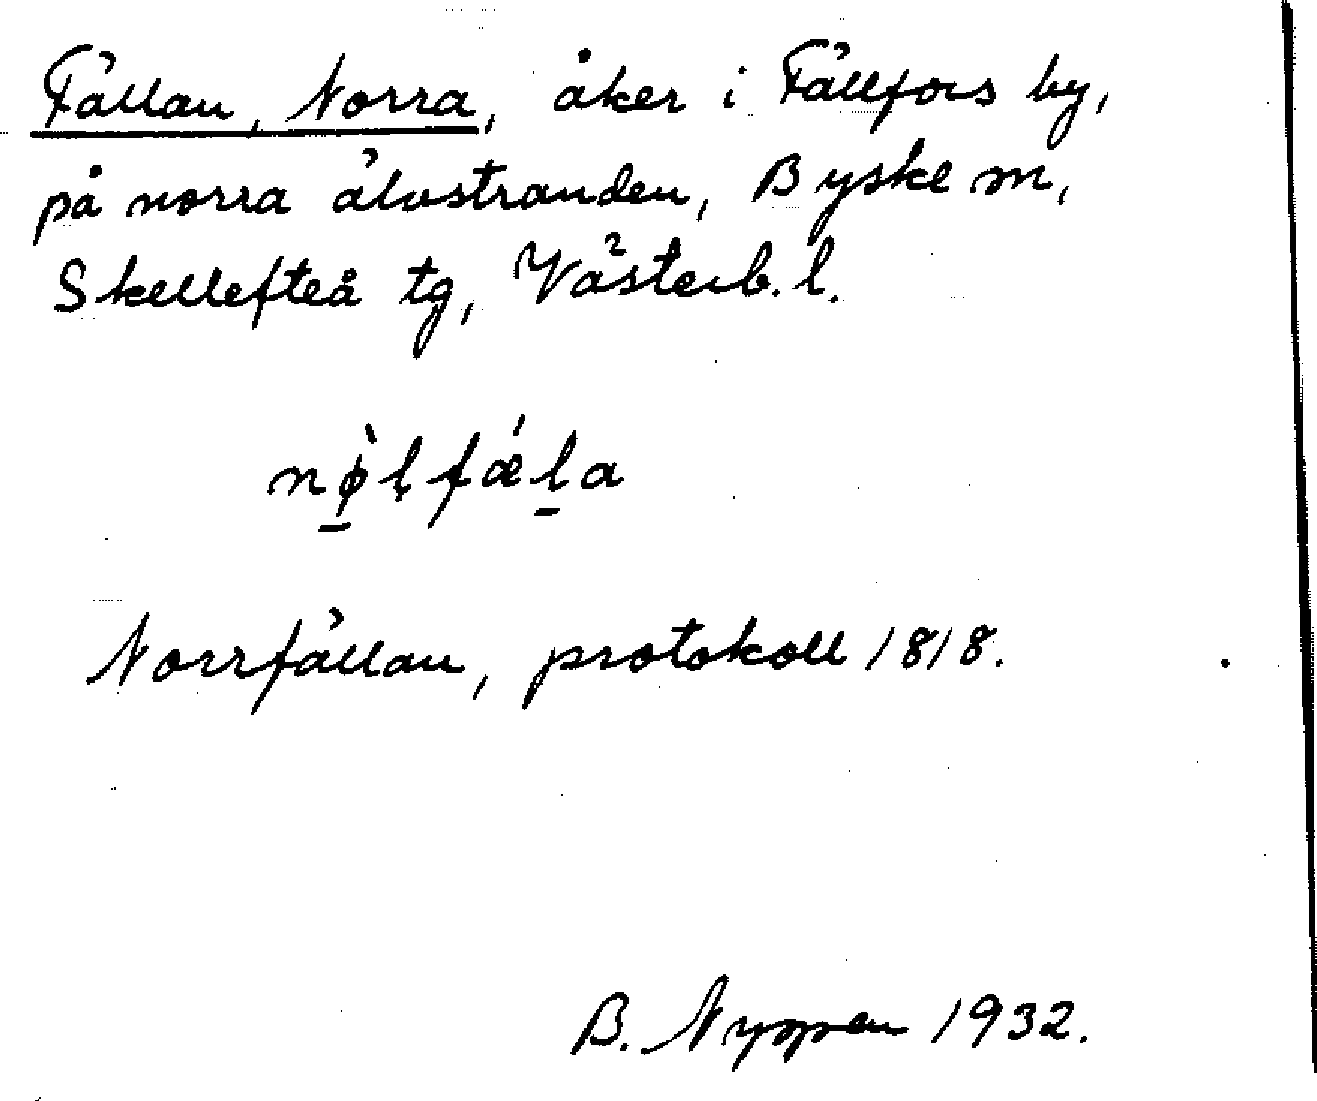 Fällan, Norra, åker i Fällfors by,
på norra älvstranden, Byske sn,
Skellefteå tg, Västerb. l.
nø̀lfǽla
Norrfällan, protokoll 1818.
B. Nyppen 1932.